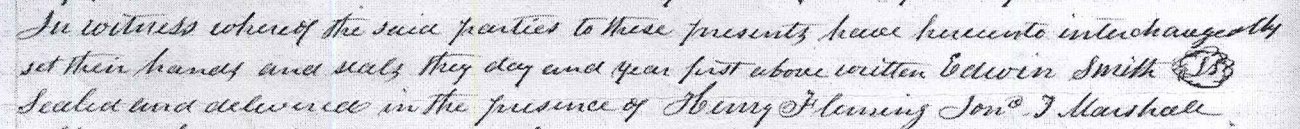 In witness whereof the said parties to these presents have hereunto interchangeably
set their hands and seals they day and year first above written Edwin Smith LS
Sealed and delivered in the presence of Henry Fleming Jonᵒ T Marshall